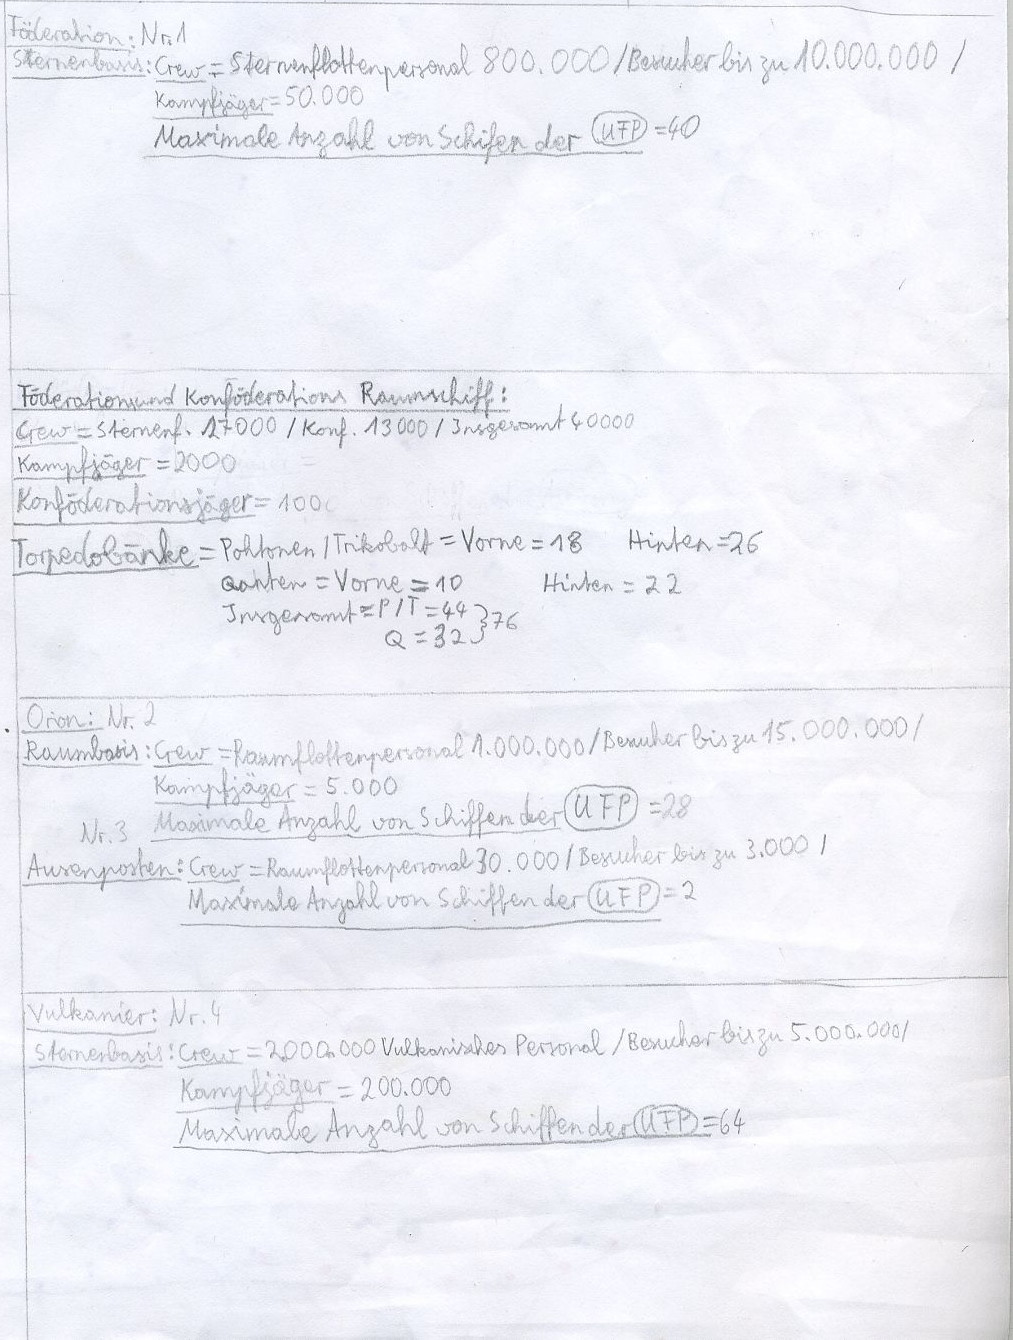 Föderation: Nr.1
Sternenbasis: Crew = Sternenflottenpersonal 800.000 / Besucher bis zu 10.000.000 /
Kampfjäger = 50.000
Maximale Anzahl von Schifen der UFP = 40
Föderations und Konföderations Raumschiff:
Crew = Sternenf. 27000 / Konf. 13000 / Insgesamt 40000
Kampfjäger = 2000
Konföderationsjäger = 1000
Torpedobänke = Pohtonen / Trikobalt = Vorne = 18 Hinten = 26
Qanten = Vorne = 10 Hinten = 22
Insgesamt = P/T = 44 } 76
Q = 32
Orion: Nr. 2
Raumbasis: Crew = Raumflottenpersonal 1.000.000 / Besucher bis zu 15.000.000 /
Kampfjäger = 5.000
Maximale Anzahl von Schiffen der UFP = 28
Nr. 3
Ausenposten: Crew = Raumflottenpersonal 30.000 / Besucher bis zu 3.000 /
Maximale Anzahl von Schiffen der UFP = 2
Vulkanier: Nr. 4
Sternenbasis: Crew = 2.000.000 Vulkanisches Personal / Besucher bis zu 5.000.000 /
Kampfjäger = 200.000
Maximale Anzahl von Schiffen der UFP = 64